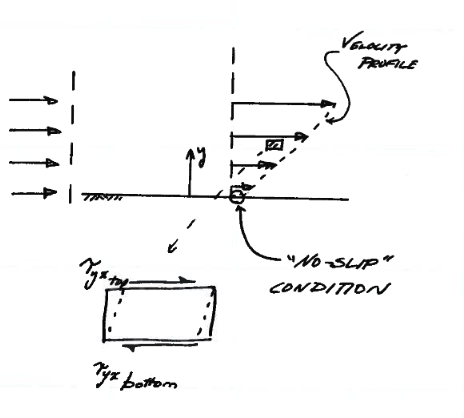 VELOCITY
PROFILE
y
"NO-SLIP"
CONDITION
τyx top
τyx bottom